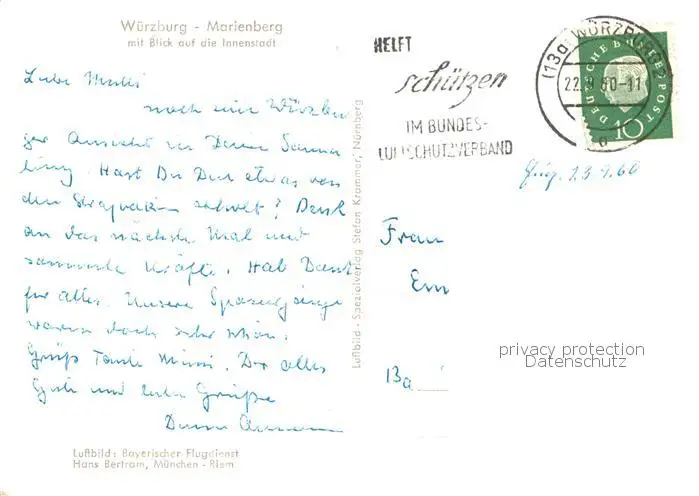 Würzburg - Marienberg
mit Blick auf die Innenstadt
Liebe Mutti
noch eine Würzbur
ger Ansicht in Deine Samm
lung. Hast Du Dich etwas von
den Strapazen erholt? Denk
an das nächste Mal und
sammle Kräfte. Hab Dank
für alles. Unsere Spaziergänge
waren doch sehr schön.
Grüß Tante Mimi. Dir alles
Gute und liebe Grüße
Deine
Luftbild: Bayerischer Flugdienst
Hans Bertram, München - Riem
Luftbild - Spezialverlag Stefan Krammer, Nürnberg
HELFT
schützen
IM BUNDES-
LUFTSCHUTZVERBAND
(13a) WÜRZBURG 2
22.9.60-11
DEUTSCHE BUNDESPOST
10
23.9.60
Frau
Em
Ba
privacy protection
Datenschutz